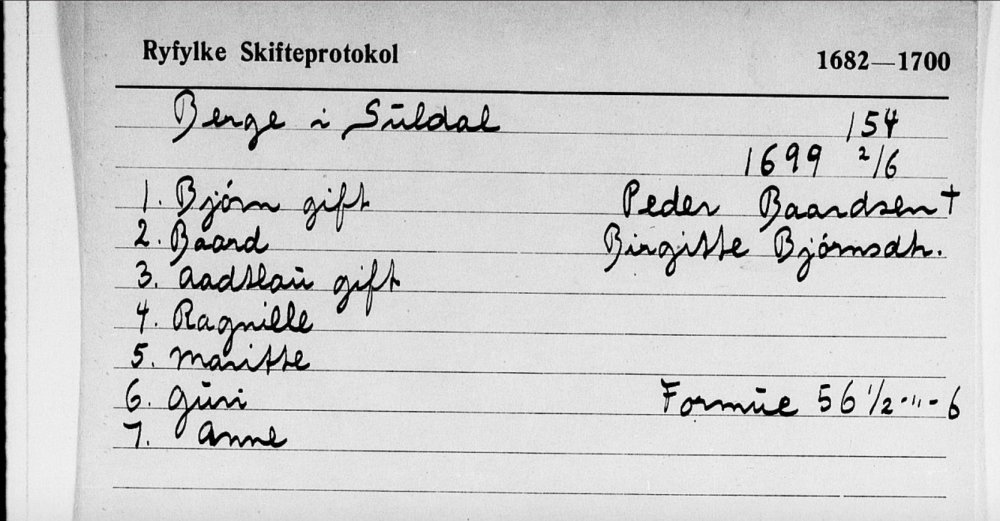 Ryfylke Skifteprotokol 1682—1700
Berge i Sŭldal 154
1699 2/6
1. Bjórn gift Peder Baardsen †
2. Baard Birgitte Bjórnsdtr.
3. Aadtlaŭ gift
4. Ragnille
5. Maritte
6. Gŭri Formŭe 56 1/2 - " - 6
7. Anne